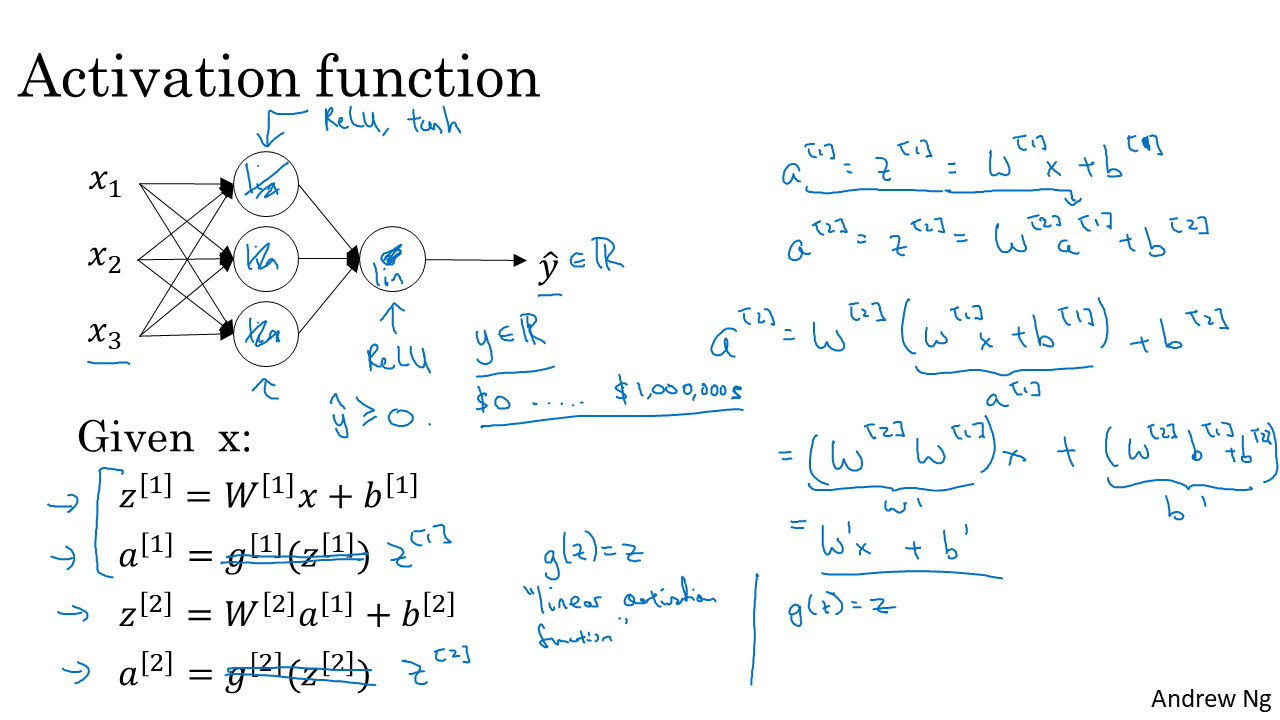 Activation function
ReLU, tanh
x₁
x₂
x₃
lin
ŷ ∈ ℝ
ReLU
ŷ ≥ 0.
y ∈ ℝ
$0 ..... $1,000,000s
Given x:
→ z^[1] = W^[1]x + b^[1]
→ a^[1] = g^[1](z^[1]) z^[1]
→ z^[2] = W^[2]a^[1] + b^[2]
→ a^[2] = g^[2](z^[2]) z^[2]
g(z) = z
"linear activation
function"
a^[1] = z^[1] = W^[1]x + b^[1]
a^[2] = z^[2] = W^[2]a^[1] + b^[2]
a^[2] = W^[2](W^[1]x + b^[1]) + b^[2]
a^[1]
= (W^[2]W^[1])x + (W^[2]b^[1] + b^[2])
W' b'
= W'x + b'
g(z) = z
Andrew Ng